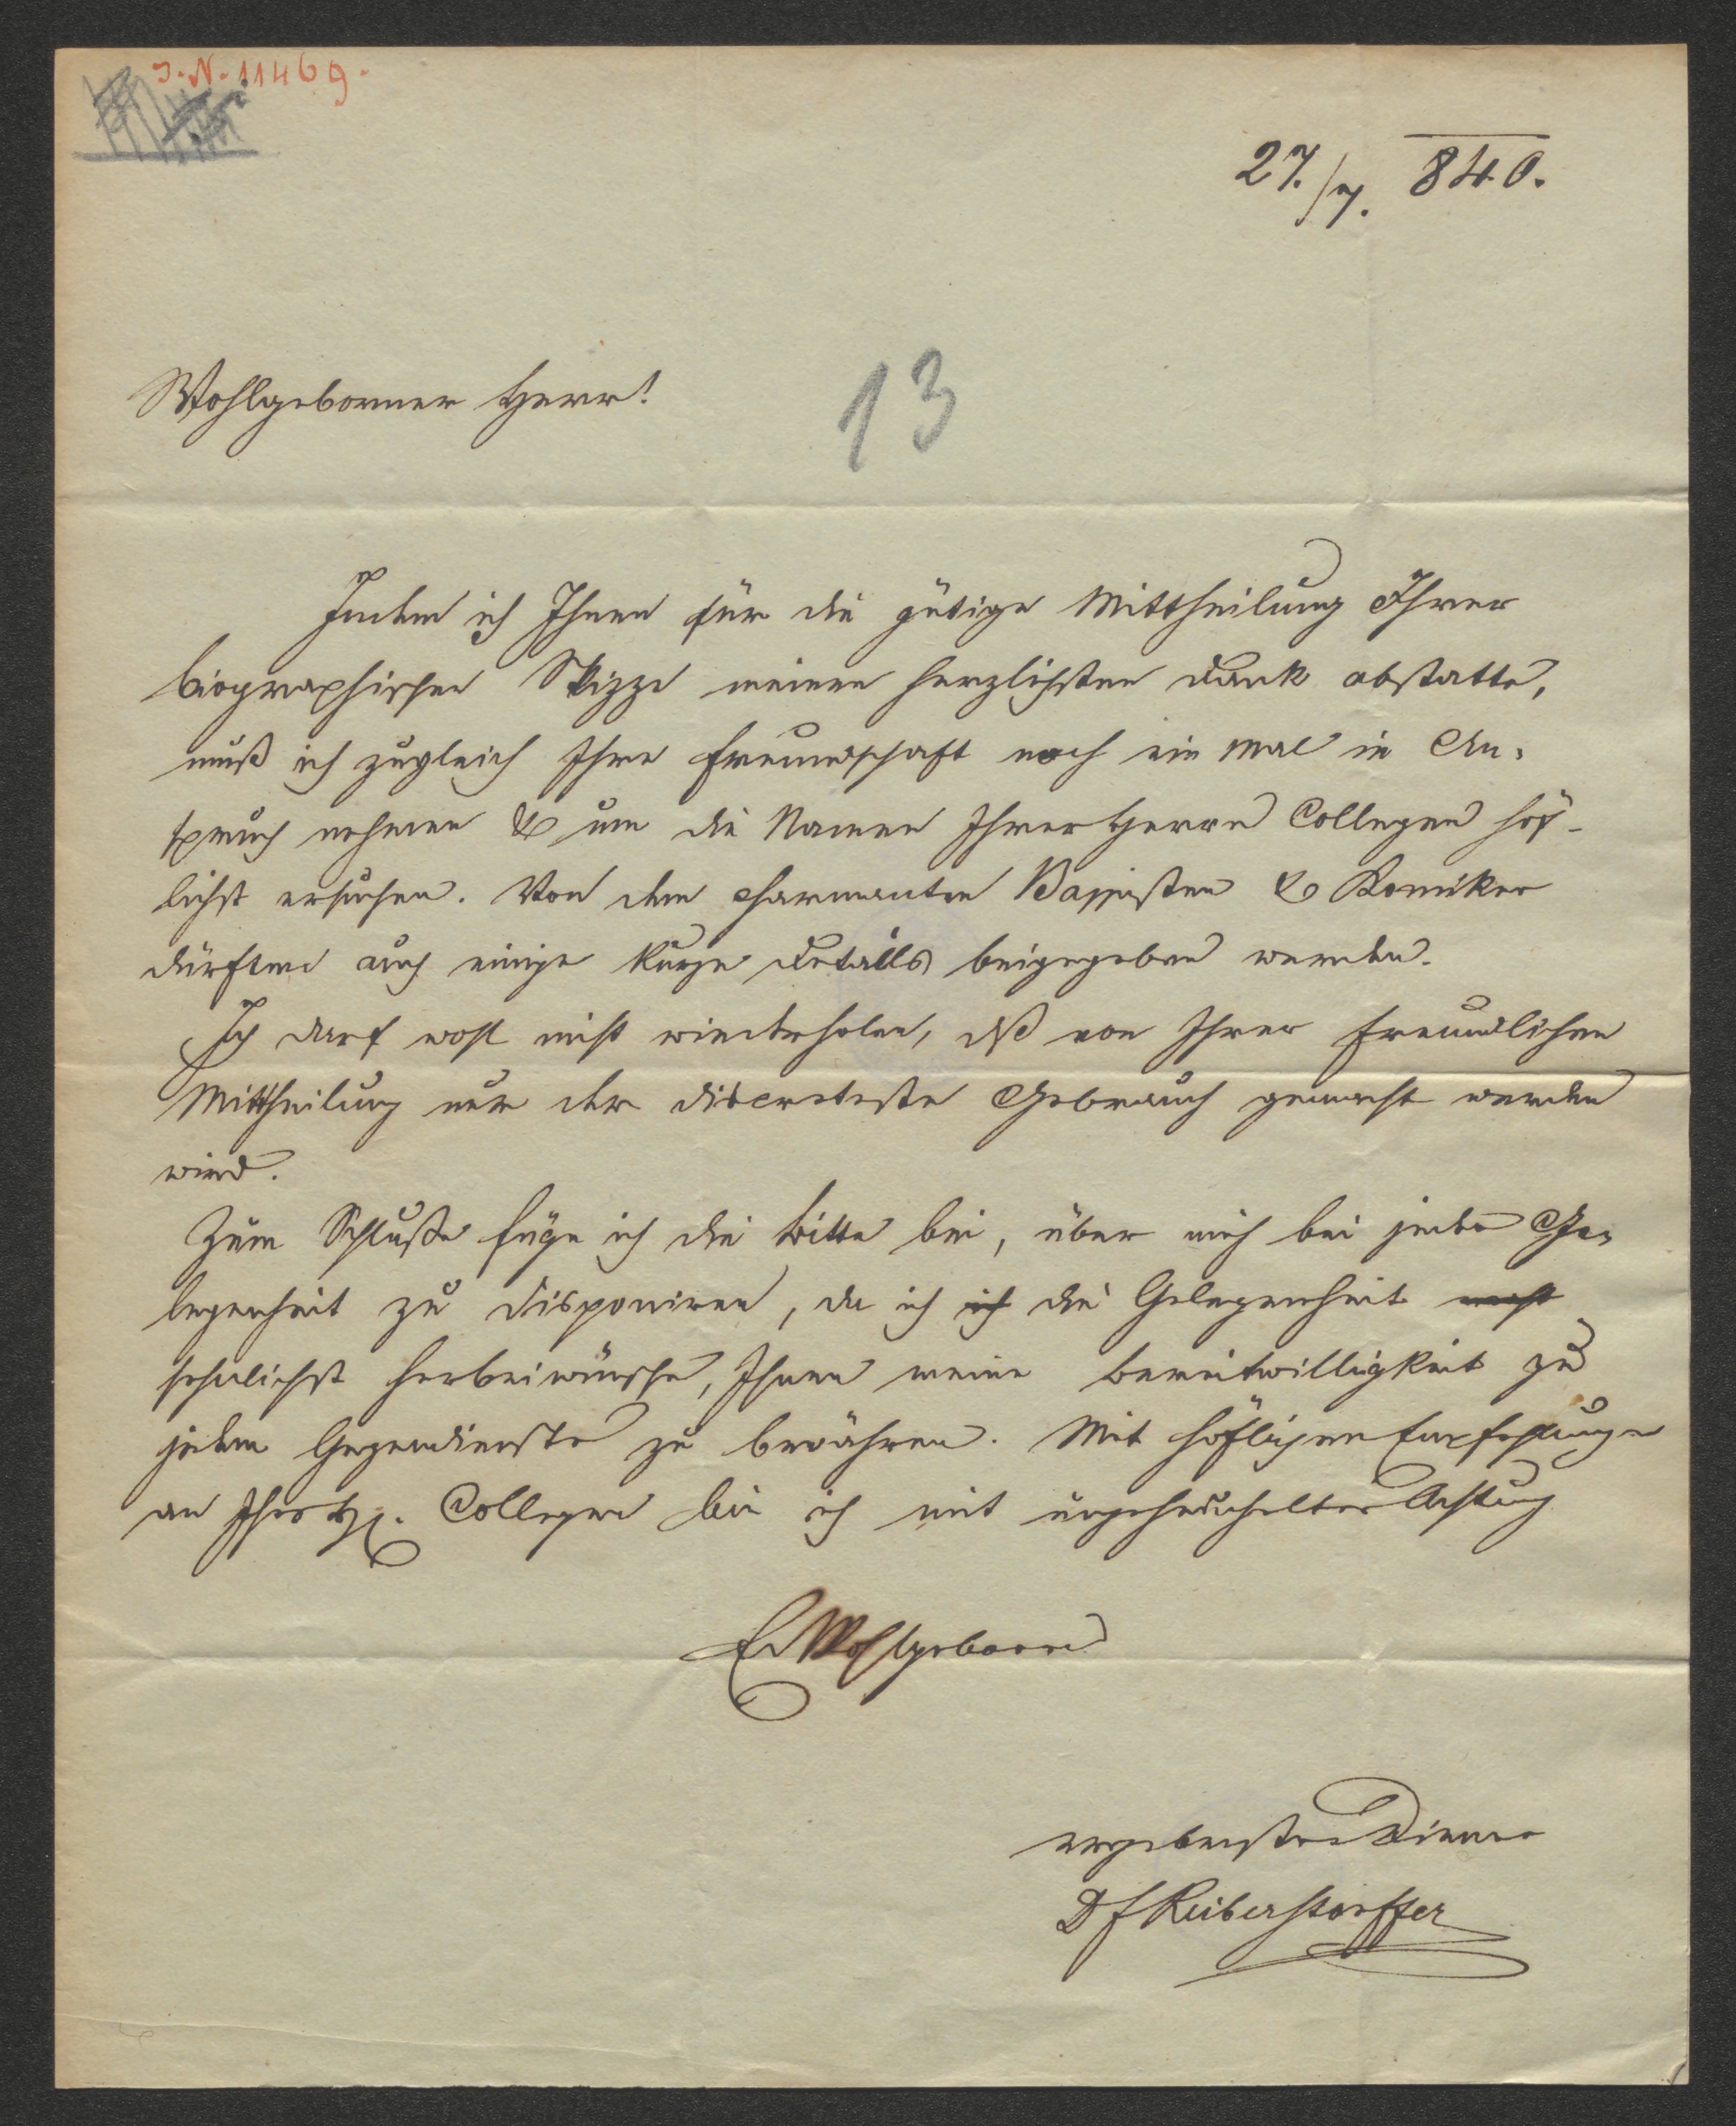 I.N. 11469.
27./7. 840.
Wohlgeborner Herr!
13
Indem ich Ihnen für die gütige Mittheilung Ihrer
biographischen Skizze meinen herzlichsten Dank abstatte,
muß ich zugleich Ihre Freundschaft noch ein Mal in An-
spruch nehmen & um die Namen Ihrer Herrn Collegen höf-
lichst ersuchen. Von dem charmanten Bassisten & Komiker
dürften auch einige kurze Details beigegeben werden.
Ich darf wohl nicht wiederholen, daß von Ihrer freundlichen
Mittheilung nur der discreteste Gebrauch gemacht werden
wird.
Zum Schluße füge ich die Bitte bei, über mich bei jeder Ge-
legenheit zu disponiren, da ich ich die Gelegenheit
sehnlichst herbeiwünsche, Ihnen meine Bereitwilligkeit zu
jedem Gegendienste zu bewähren. Mit höflichen Empfehlungen
an Ihre H. Collegen bin ich mit ungeheuchelter Achtung
Er Wohlgeboren
ergebenster Diener
D F Reiberstorffer